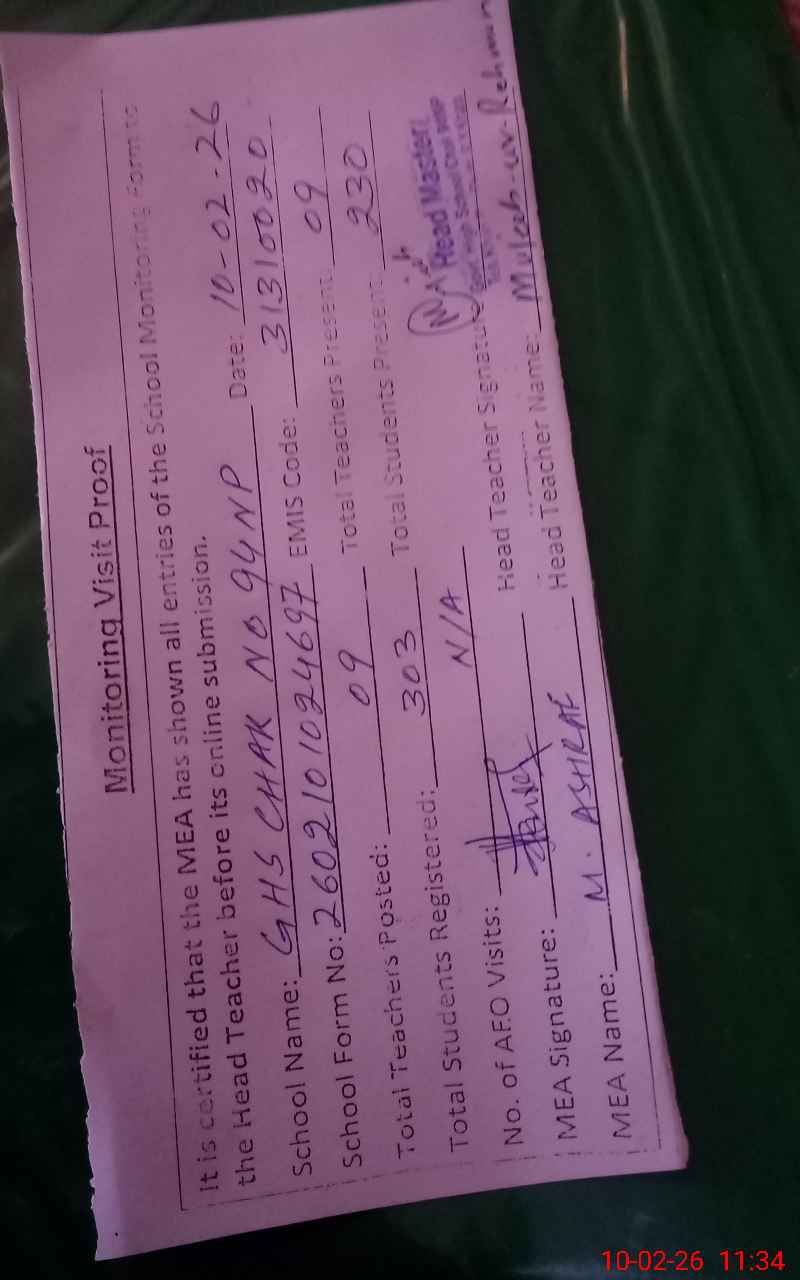 Monitoring Visit Proof
It is certified that the MEA has shown all entries of the School Monitoring Form to
the Head Teacher before its online submission.
School Name: GHS CHAK NO 94NP Date: 10-02-26
School Form No: 2602101024697 EMIS Code: 31310020
Total Teachers Posted: 09 Total Teachers Present: 09
Total Students Registered: 303 Total Students Present: 230
No. of AEO Visits: N/A Head Teacher Signature
Head Master
Govt High School
MEA Signature: Head Teacher Name: Mujeeb-ur-Rehman
MEA Name: M. ASHRAF
10-02-26 11:34